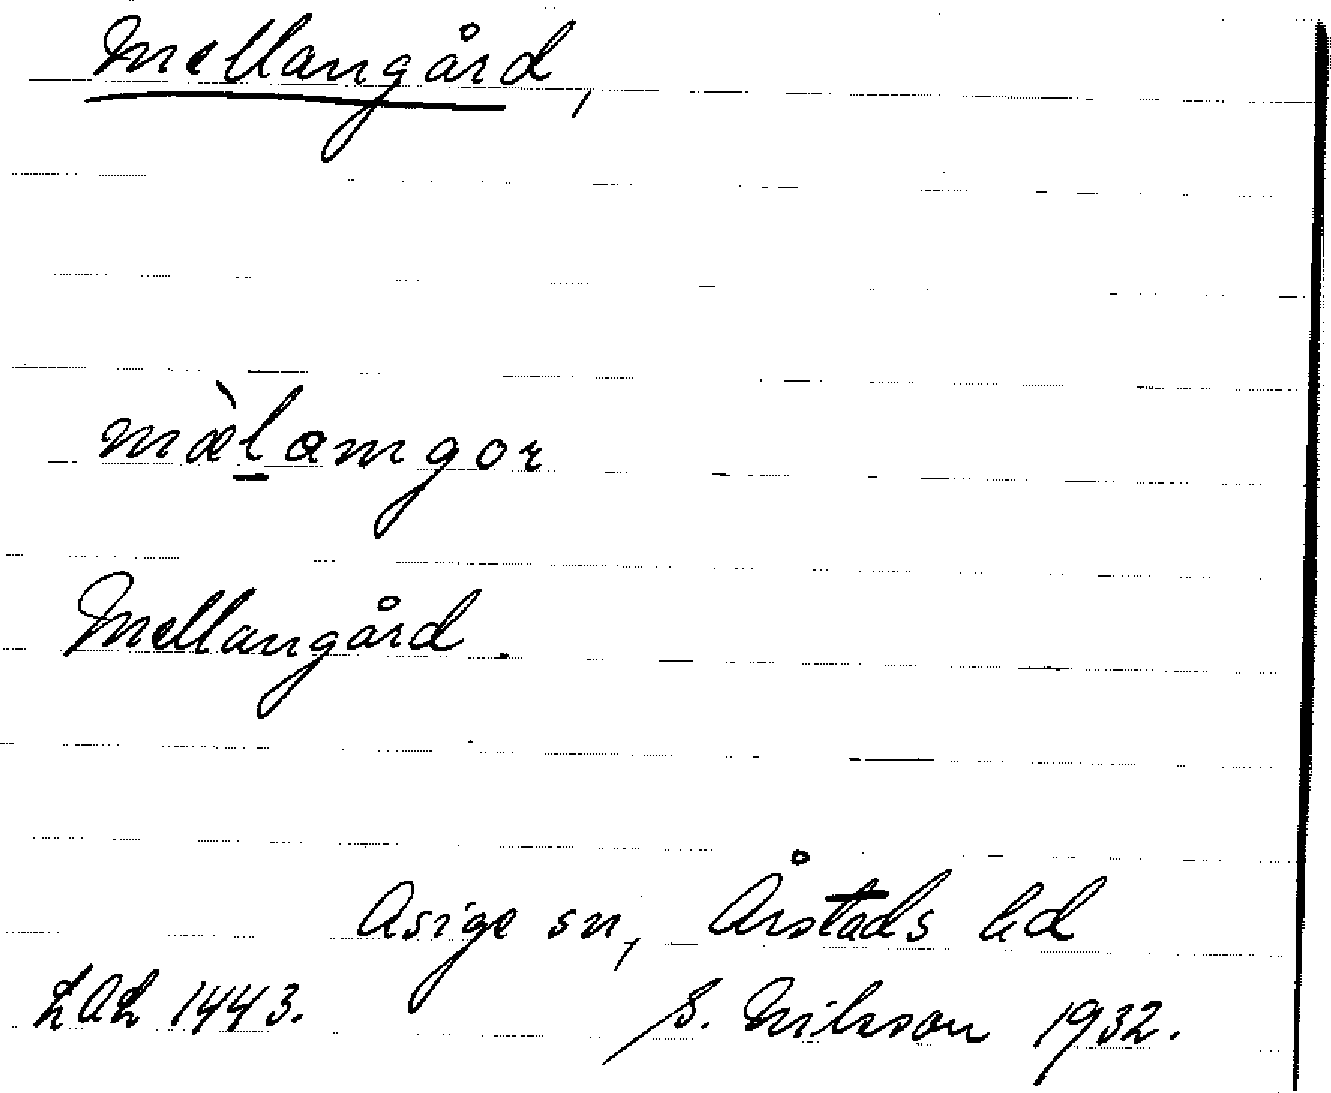 Mellangård,
mæ̀l̲amgor
Mellangård.
Asige sn, Årstads hd
LAL 1443. S. Nilsson 1932.